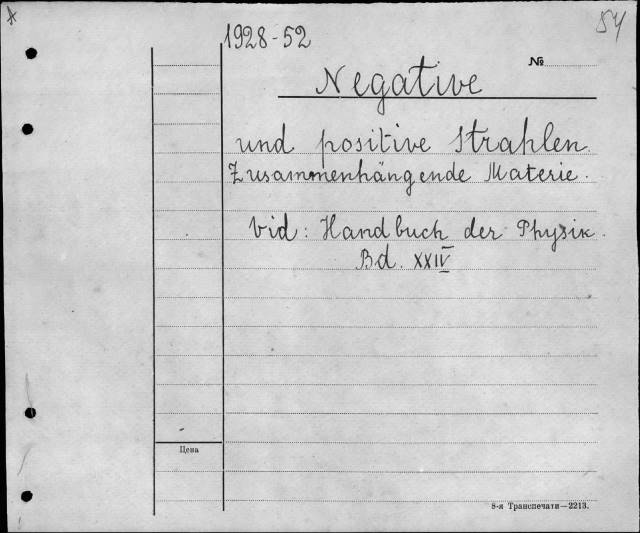 54
1928-52
№
Negative
und positive Strahlen.
Zusammenhängende Materie.
Vid: Handbuch der Physik.
Bd. XXIV
Цена
8-я Транспечати—2213.